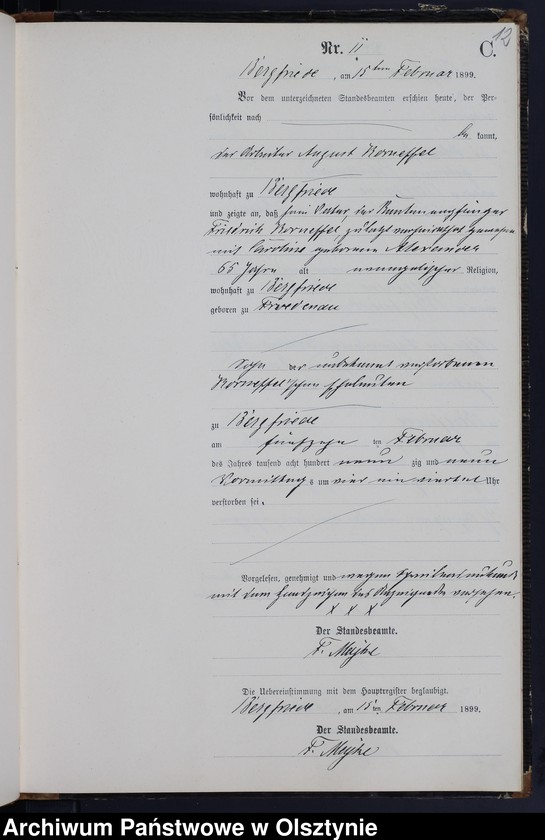 12
Nr. 11 C.
Bergfriede, am 15ten Februar 1899.
Vor dem unterzeichneten Standesbeamten erschien heute, der Per-
sönlichkeit nach
be kannt,
der Arbeiter August Korneffel
wohnhaft zu Bergfriede
und zeigte an, daß sein Vater, der Rentenempfänger
Friedrich Korneffel, zuletzt verheirathet gewesen
mit Caroline geborenen Alexander
65 Jahre alt evangelischer Religion,
wohnhaft zu Bergfriede
geboren zu
Sohn der unbekannt verstorbenen
Korneffel'schen Eheleuten
zu Bergfriede
am fünfzehn ten Februar
des Jahres tausend acht hundert neun zig und neun
Vormittag s um vier ein viertel Uhr
verstorben sei.
Vorgelesen, genehmigt und wegen Schreibensunkunde
mit dem Handzeichen des Anzeigenden versehen.
x x x
Der Standesbeamte.
F.
Die Uebereinstimmung mit dem Hauptregister beglaubigt.
Bergfriede, am 15ten Februar 1899.
Der Standesbeamte.
F.
Archiwum Państwowe w Olsztynie